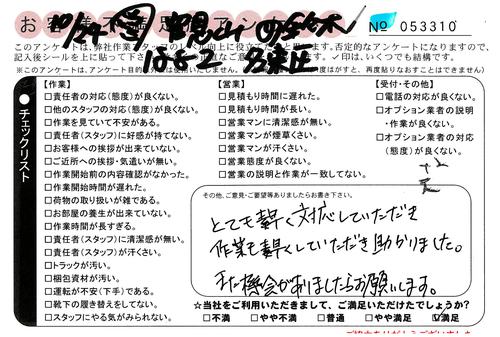 お客様不満足アンケート
№ 053310
このアンケートは、弊社作業スタッフのレベル向上に役立てたいと思います。否定的なアンケートになりますので、
※このアンケートは、アンケート目的
チェックリスト
【作業】
□責任者の対応(態度)が良くない。
□他のスタッフの対応(態度)が良くない。
□作業を見ていて不安がある。
□責任者(スタッフ)に好感が持てない。
□お客様への挨拶が出来ていない。
□ご近所への挨拶・気遣いが無い。
□作業開始前の内容確認がなかった。
□作業開始時間が遅れた。
□荷物の取り扱いが雑である。
□お部屋の養生が出来ていない。
□作業時間が長すぎる。
□責任者(スタッフ)に清潔感が無い。
□責任者(スタッフ)が汗くさい。
□トラックが汚い。
□梱包資材が汚い。
□運転が不安(下手)である。
□靴下の履き替えをしてない。
□スタッフにやる気がみられない。
【営業】
□見積もり時間に遅れた。
□見積もり時間が長い。
□営業マンに清潔感が無い。
□営業マンが煙草くさい。
□営業マンが汗くさい。
□営業態度が良くない。
□営業の説明と作業が一致してない。
【受付・その他】
□電話の対応が良くない。
□オプション業者の説明
・作業が良くない。
□オプション業者の対応
(態度)が良くない。
その他、ご意見・ご要望等ありましたらお書き下さい。
とても早く対応していただき
作業も早くしていただき助かりました。
また機会がありましたらお願いします。
☆当社をご利用いただきまして、ご満足いただけたでしょうか?
□不満 □やや不満 □普通 □やや満足 ☑満足